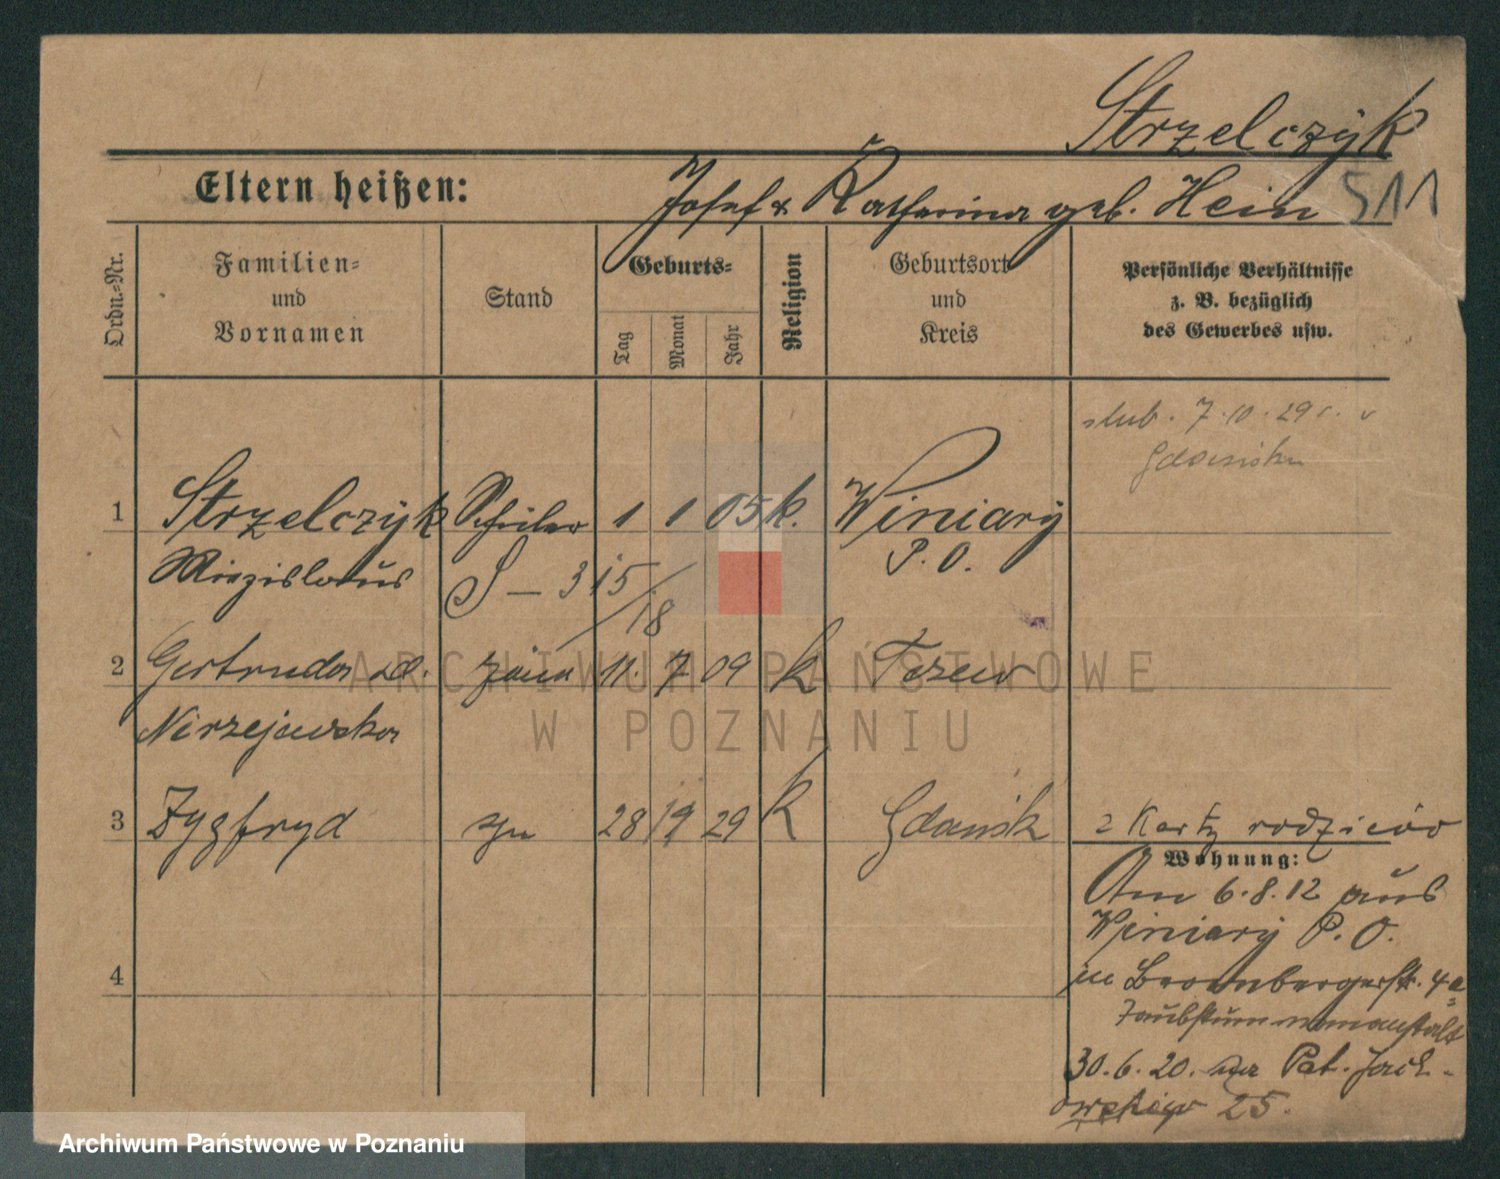 Strzelczyk
Eltern heißen: Josef & Katharina geb. Hein 511
Ordn.-Nr.
Familien-
und
Vornamen
Stand
Geburts-
Tag
Monat
Jahr
Religion
Geburtsort
und
Kreis
Persönliche Verhältnisse
z. B. bezüglich
des Gewerbes usw.
slub. 7.10.29 r. v
Gdańsku
1 Strzelczyk Schüler 1 1 05 k. Winiary
Miezislaus S – 315/18 P. O.
2 Gertruda żona 11. 7 09 k Tczew
Nirzejewska
3 Zygfryd syn 28 9 29 k Gdańsk z Karty rodziców
Wohnung:
Am 6.8.12 aus
Winiary P. O.
in Brombergerstr. 4a
Taubstummenanstalt
4
30.6.20. na Pat. Jack-
owskiego 25.
ARCHIWUM PAŃSTWOWE
W POZNANIU
Archiwum Państwowe w Poznaniu